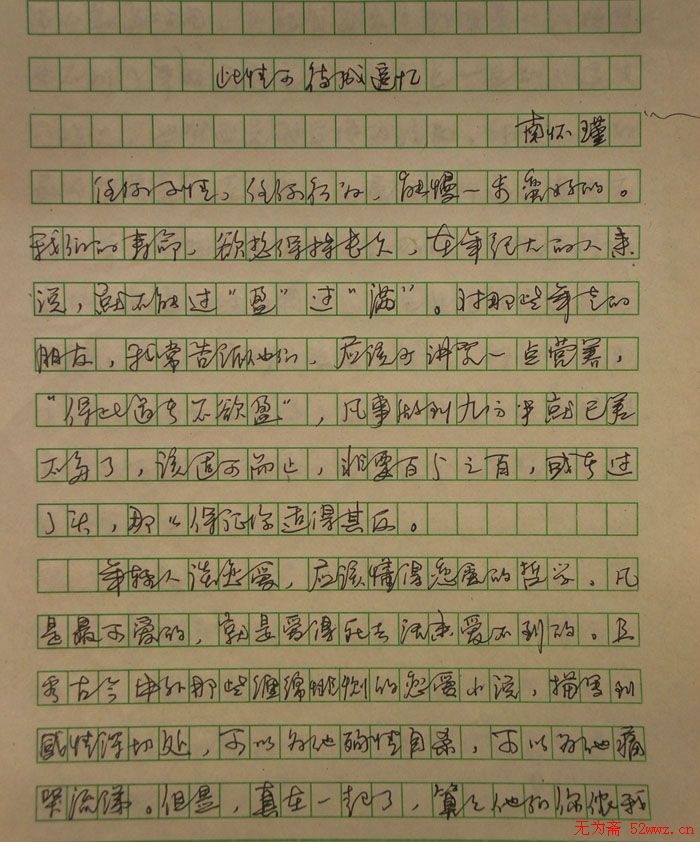 此情可待成追忆
南怀瑾
任何事情，任何行为，能慢一步蛮好的。
我们的寿命，欲想保持长久，在年纪大的人来
说，就不能过“盈”过“满”。对那些年老的
朋友，我常告诉他们，应该少讲究一点营养，
“保此道者不欲盈”，凡事做到九分半就已差
不多了，该适可而止，非要百分之百，或者过
了头，那么保证你适得其反。
年轻人谈恋爱，应该懂得恋爱的哲学。凡
是最可爱的，就是爱得死去活来爱不到的。且
看古今中外那些缠绵悱恻的恋爱小说，描写到
感情深切处，可以为他殉情自杀，可以为他痛
哭流涕。但是，真在一起了，算算他们你侬我
无为斋 52wwz.cn